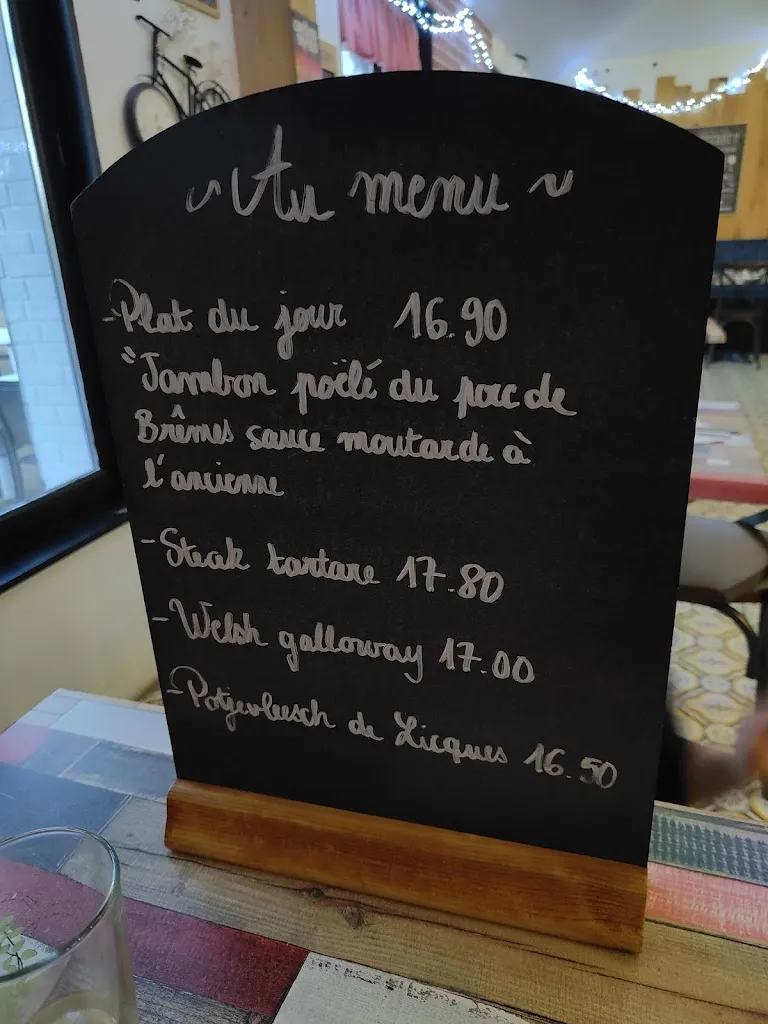 ~ Au menu ~
- Plat du jour 16.90
"Jambon poëlé du porc de
Brêmes sauce moutarde à
l'ancienne
- Steak tartare 17.80
- Welsh galloway 17.00
- Potjevleesch de Licques 16.50